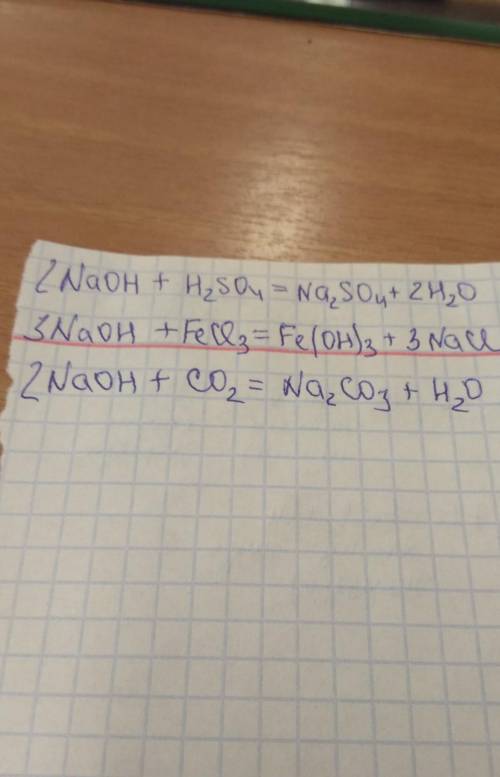 2NaOH + H₂SO₄ = Na₂SO₄ + 2H₂O
3NaOH + FeCl₃ = Fe(OH)₃ + 3NaCl
2NaOH + CO₂ = Na₂CO₃ + H₂O